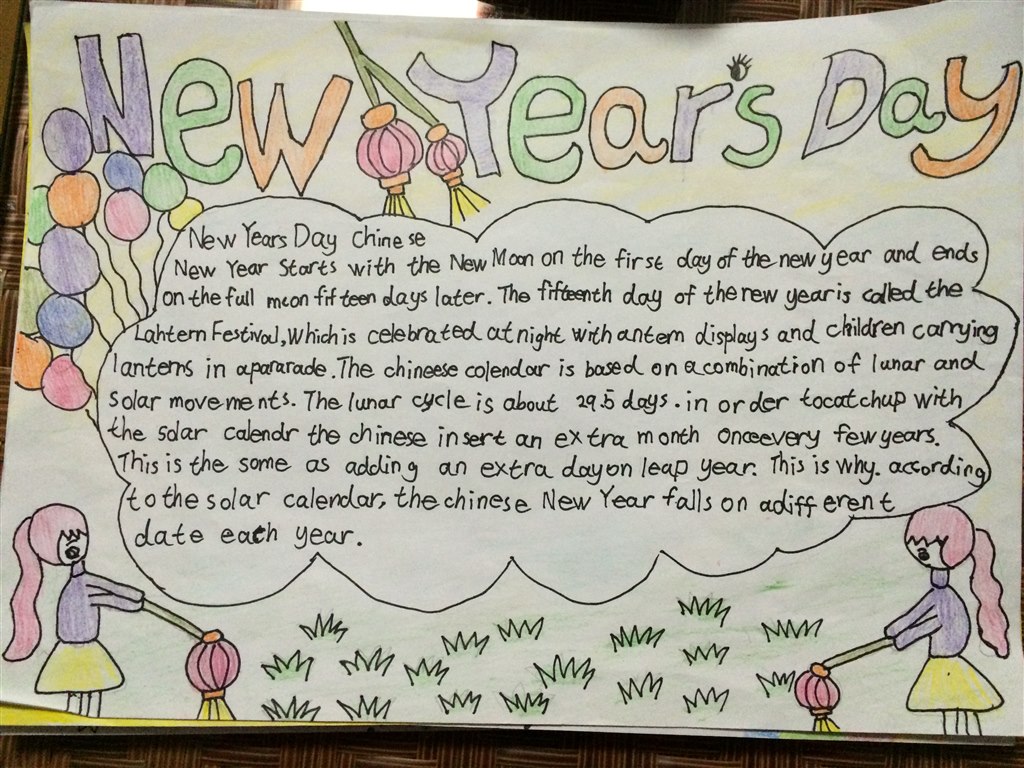 New Year's Day
New Years Day Chinese
New Year Starts with the New Moon on the first day of the new year and ends
on the full mcon fifteen days later. The fifteenth day of the new year is called the
Lahtern Festival, Which is celebrated at night with antern displays and children carrying
lanterns in apararade. The chineese colendar is based on a combination of lunar and
Solar movements. The lunar cycle is about 29.5 days. in order tocatchup with
the solar calendr the chinese insert an extra month onceevery few years.
This is the some as adding an extra day on leap year. This is why. according
to the solar calendar, the chinese New Year falls on adifferent
date each year.